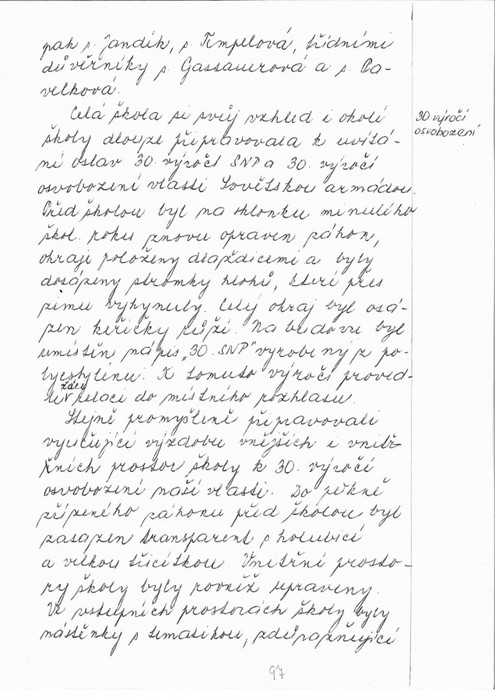 pak s. Jandík, s. Timpelová, třídními
důvěrníky s. Gassauerová a s. Pa-
velková.
Celá škola si svůj vzhled i okolí
školy dlouze připravovala k uvítá-
ní oslav 30. výročí SNP a 30. výročí
osvobození vlasti Sovětskou armádou.
Před školou byl na sklonku minulého
škol. roku znovu opraven záhon,
okraje položeny dlaždicemi a byly
dosázeny stromky hlohů, které přes
zimu vyhynuly. Celý okraj byl osá-
zen keříčky růží. Na budovu byl
umístěn nápis "30. SNP" vyrobený z po-
lystylénu. K tomuto výročí proved-
relaci do místního rozhlasu.
Stejně promyšleně připravovali
vyučující výzdobu vnějších i vnitř-
řních prostor školy k 30. výročí
osvobození naší vlasti. Do pěkně
zřízeného záhonu před školou byl
zasazen transparent s holubicí
a velkou třicítkou. Vnitřní prosto-
ry školy byly rovněž upraveny.
Ve vstupních prostorách školy byly
nástěnky s tematikou, zdůrazňující
30 výročí
osvobození
97